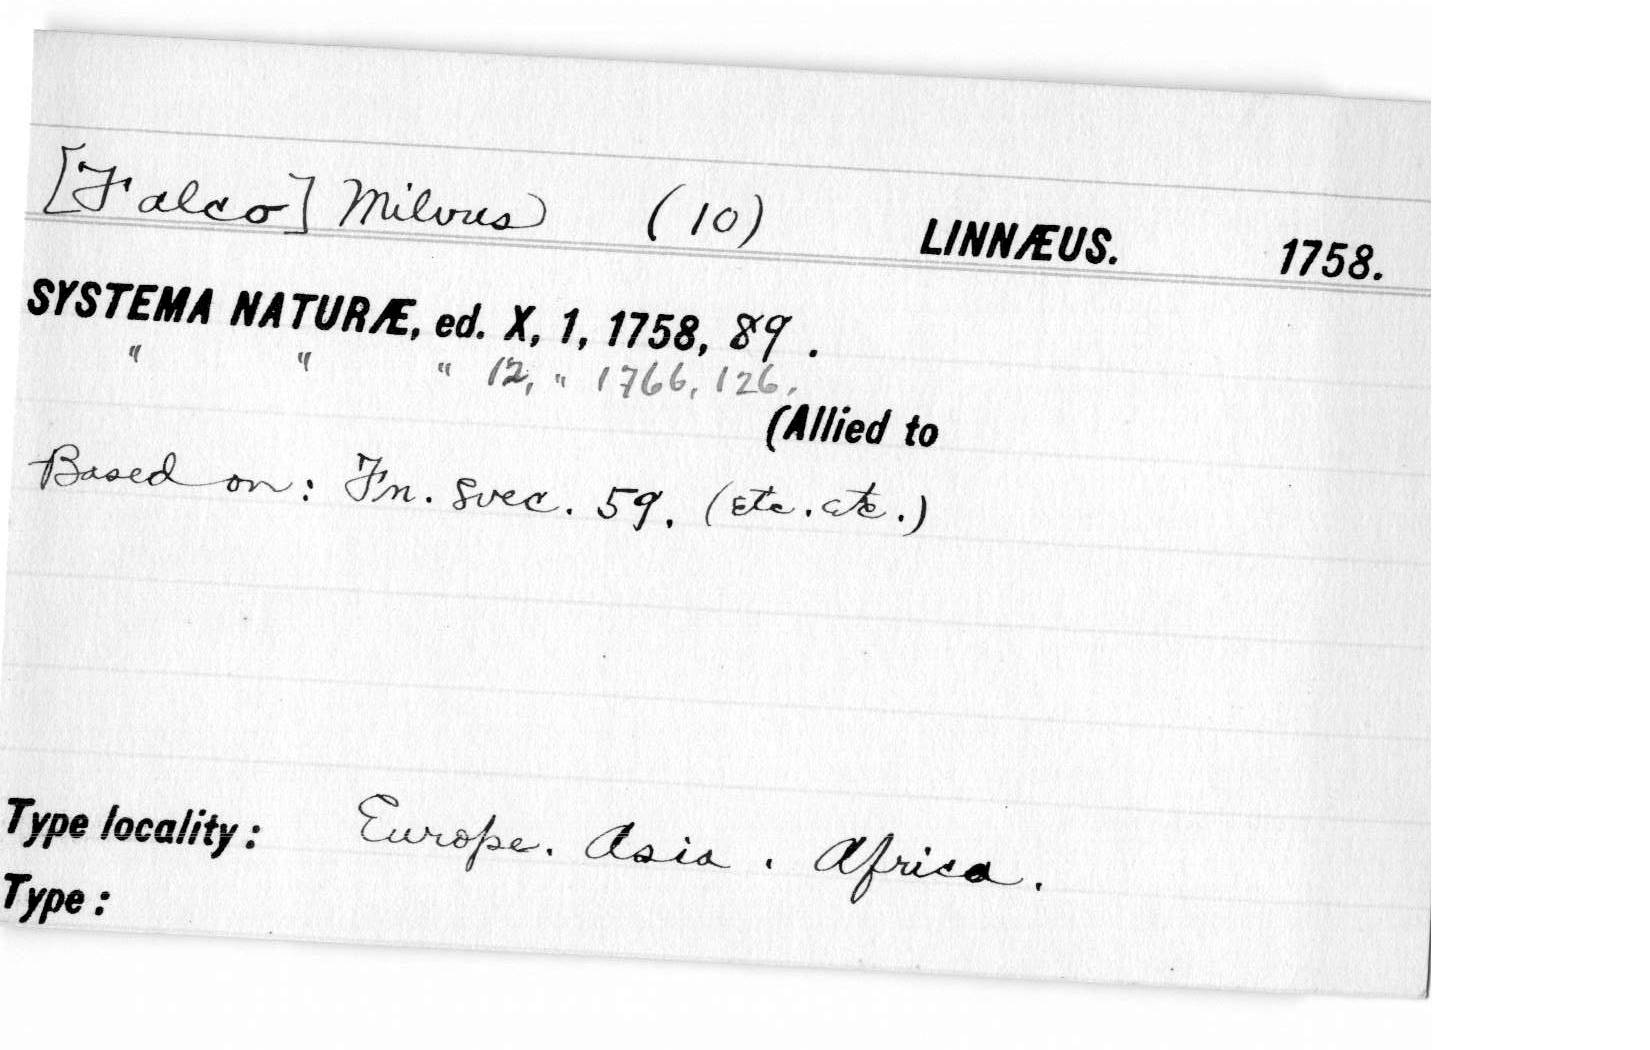 [Falco] Milvus (10) LINNÆUS. 1758.
SYSTEMA NATURÆ, ed. X, 1, 1758, 89 .
" " " 12, " 1766, 126.
(Allied to
Based on: Fn. Svec. 59. (etc. etc.)
Type locality: Europe. Asia. Africa.
Type: